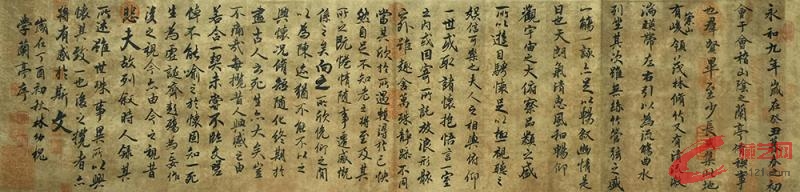 永和九年歲在癸丑暮春之初
會于會稽山陰之蘭亭脩稧事
也群賢畢至少長咸集此地
崇山
有峻領茂林脩竹又有清流激
湍暎帶左右引以為流觴曲水
列坐其次雖無絲竹管弦之盛
一觴一詠亦足以暢敘幽情是
日也天朗氣清惠風和暢仰
觀宇宙之大俯察品類之盛
所以遊目騁懷足以極視聽之
娛信可樂也夫人之相與俯仰
一世或取諸懷抱悟言一室
之內或因寄所託放浪形骸
之外雖趣舍萬殊靜躁不同
當其欣於所遇暫得於己快
然自足不知老之將至及其
所之既惓情隨事遷感慨
係之矣向之所欣俛仰之間
以為陳迹猶不能不以之
興懷況脩短隨化終期於
盡古人云死生亦大矣豈
不痛哉每攬昔人興感之由
若合一契未嘗不臨文嗟
悼不能喻之於懷固知一死
生為虛誕齊彭殤為妄作
後之視今亦由今之視昔
悲夫故列敘時人錄其
所述雖世殊事異所以興
懷其致一也後之攬者亦
將有感於斯文
歲在丁酉初秋林幼
學蘭亭序